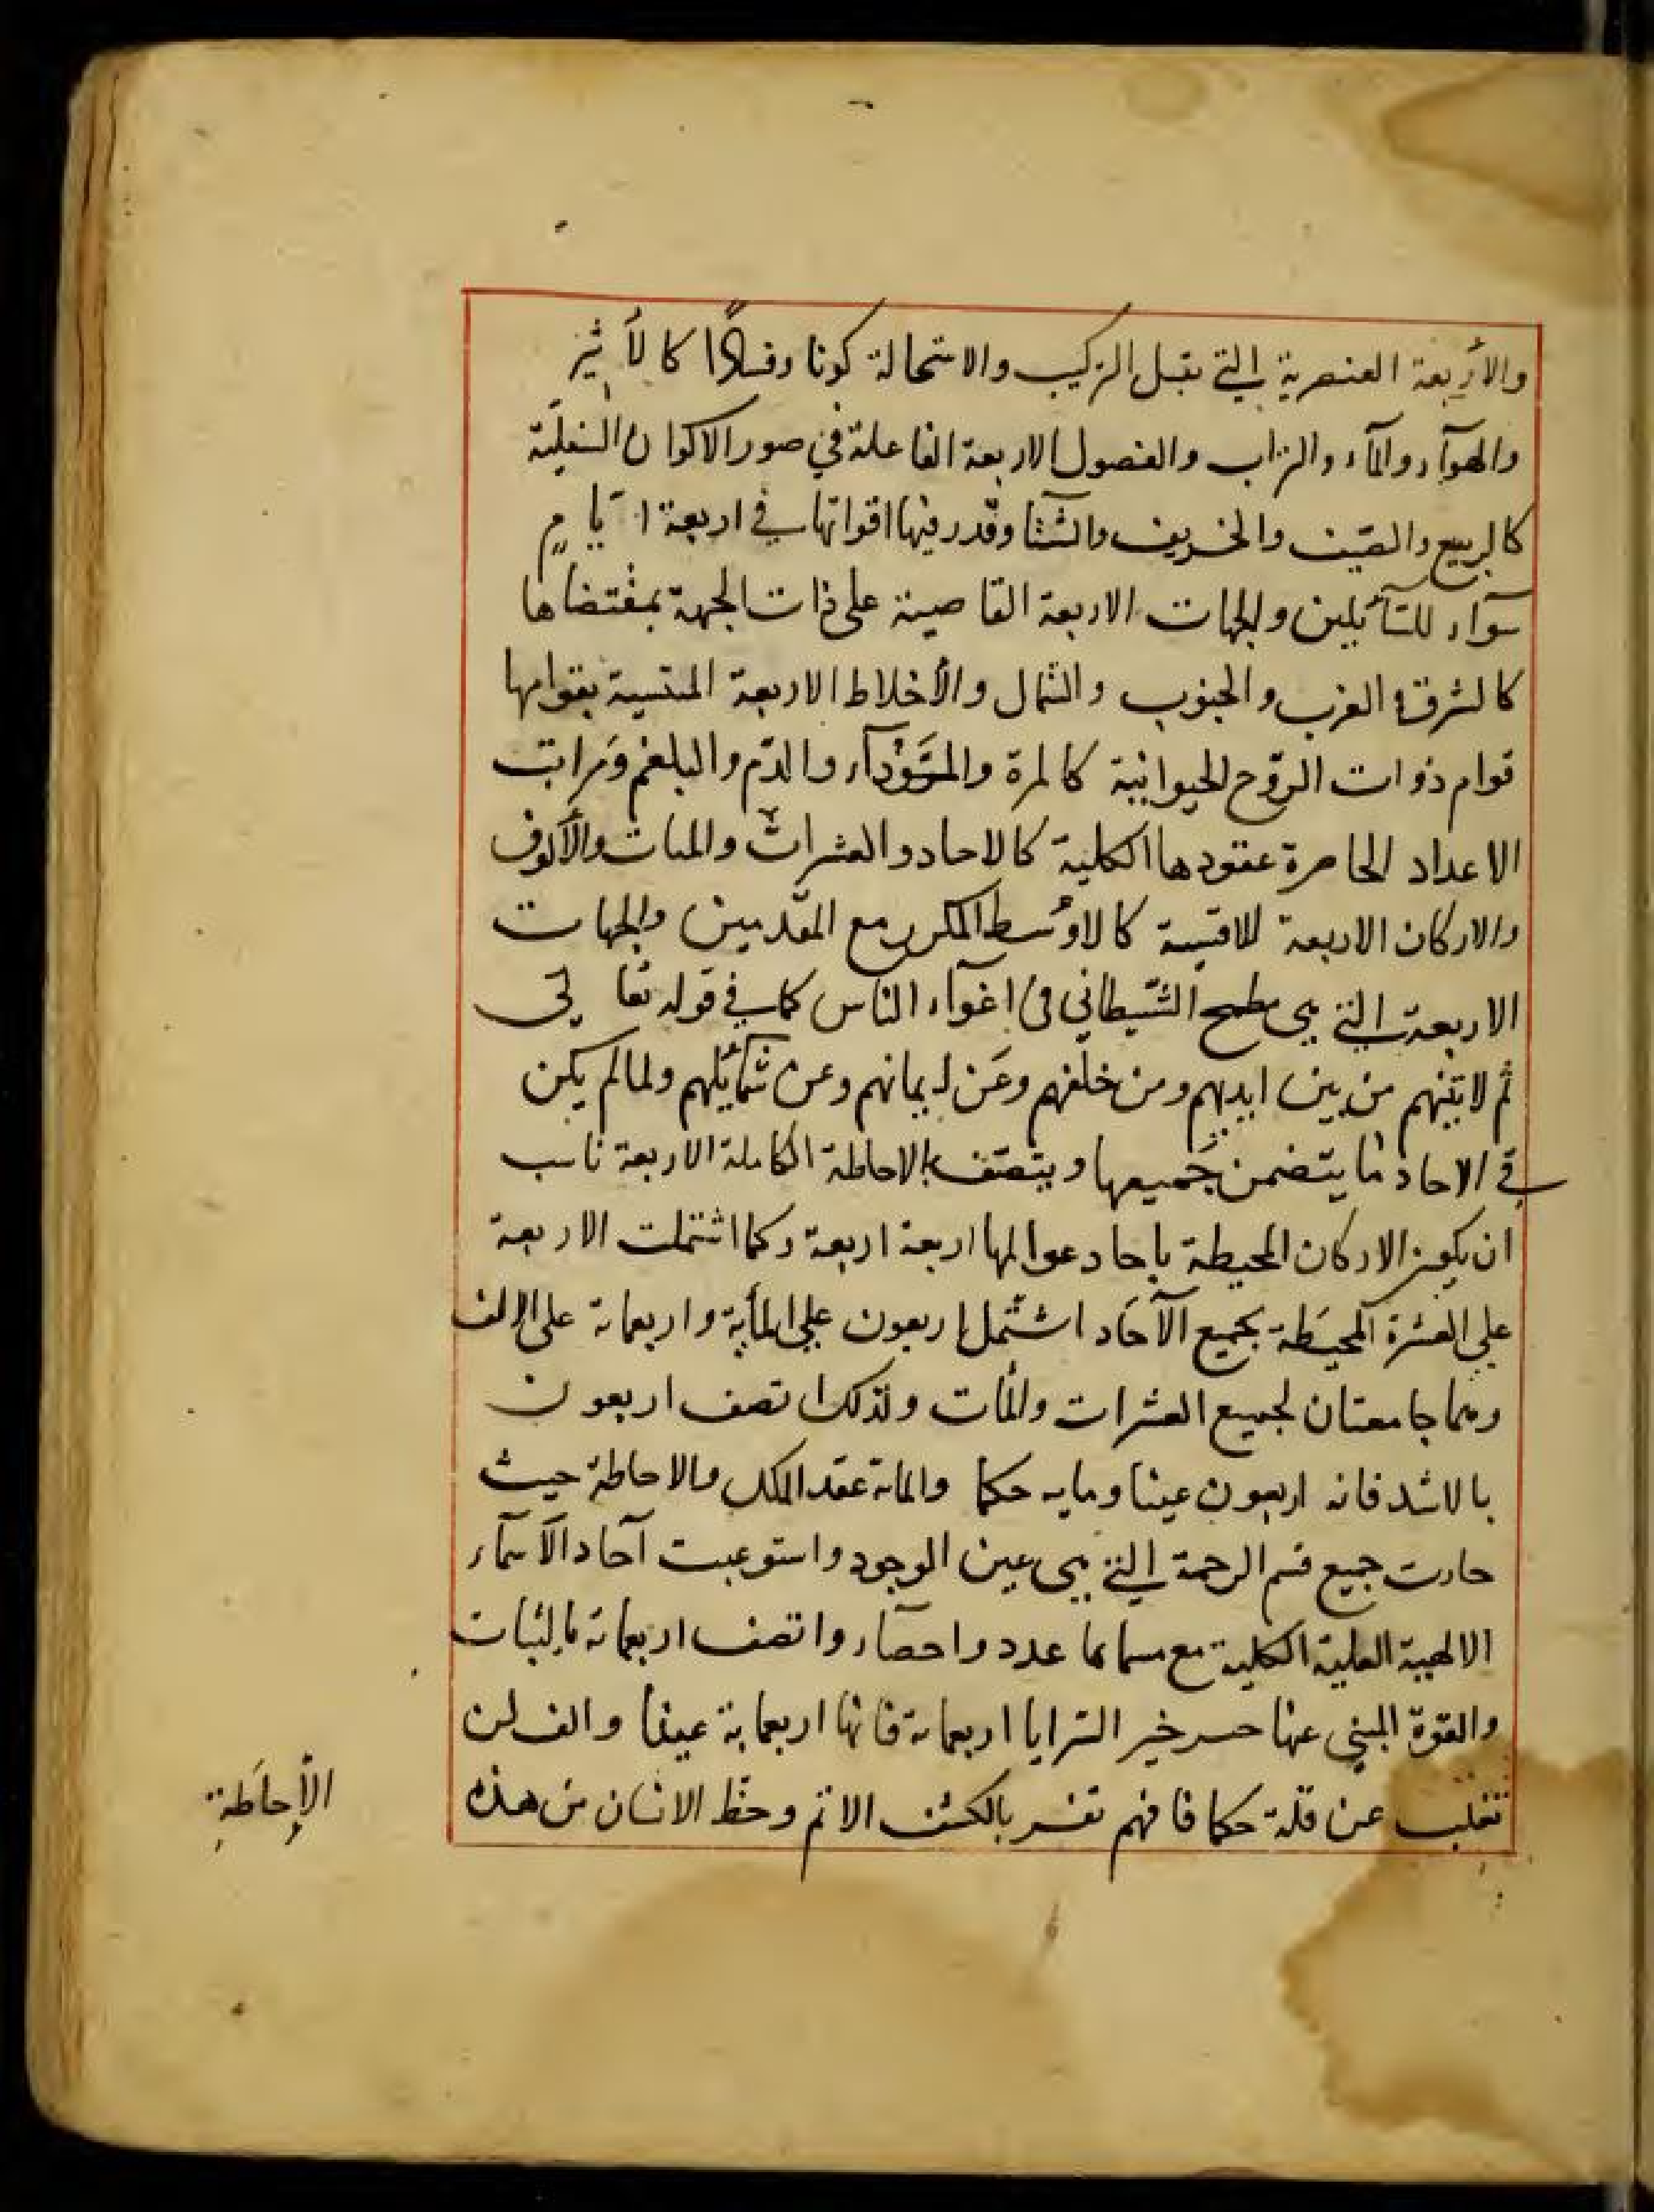 والأربعة العنصرية التي تقبل التركيب والاستحالة كونا وفسادًا كالأثير
والهوآء والمآء والتراب والفصول الاربعة الفاعلة في صور الاكوان السفليّة
كالربيع والصّيف والخريف والشّتا وقدر فيها اقواتها في اربعة ايّامٍ
سوآء للسّآئلين والجهات الاربعة القاضية على ذات الجهة بمقتضاها
كالشرق والغرب والجنوب والشمال والأخلاط الاربعة بقوامها
قوام ذوات الروّح الحيوانية كالمرة والسَّوْدآء والدّم والبلغم وَمراتب
الاعداد الحاصرة عقودها الكلية كالاحاد والعشرات والمئات والألوف
والاركان الاربعة للاقيسة كالاوسط المكرر مع المقدمين والجهات
الاربعة التي هي مطمح الشّيطاني في اغوآء الناس كما في قوله تعالى
ثم لاتينهم من بين ايديهم ومن خلفهم وعَن ايمانهم وعن شمآئلهم ولما لم يكن
في الاحاد ما يتضمن جَميعها ويتصف بالاحاطة الكاملة الا اربعة ناسب
ان يكون الاركان المحيطة باحاد عوالمها اربعة اربعة وكما اشتملت الاربعة
على العشرة المحيَطة بجميع الآحَاد اشتمل اربعون على المأية واربعماية على الالف
وهما جامعتان لجميع العشرات والمأت ولذلك اتصف اربعون
بالاشد فانه اربعون عينا ومايه حكما والماية عقد الملك والاحاطة حيث
حازت جميع قسم الرحمة التي هي عين الوجود واستوعبت آحاد الآسمآء
الالهية العلية الكلية مع عدد واحصآء واتصف اربعماية بالثبات
والقوة المبني عنها خير السّرايا اربعماية فانها اربعماية عينا والف لن
تغلب عن قلة حكما فافهم تفسر بالكشف الاتم وحظ الانسان من هذه
الأِحاَطة